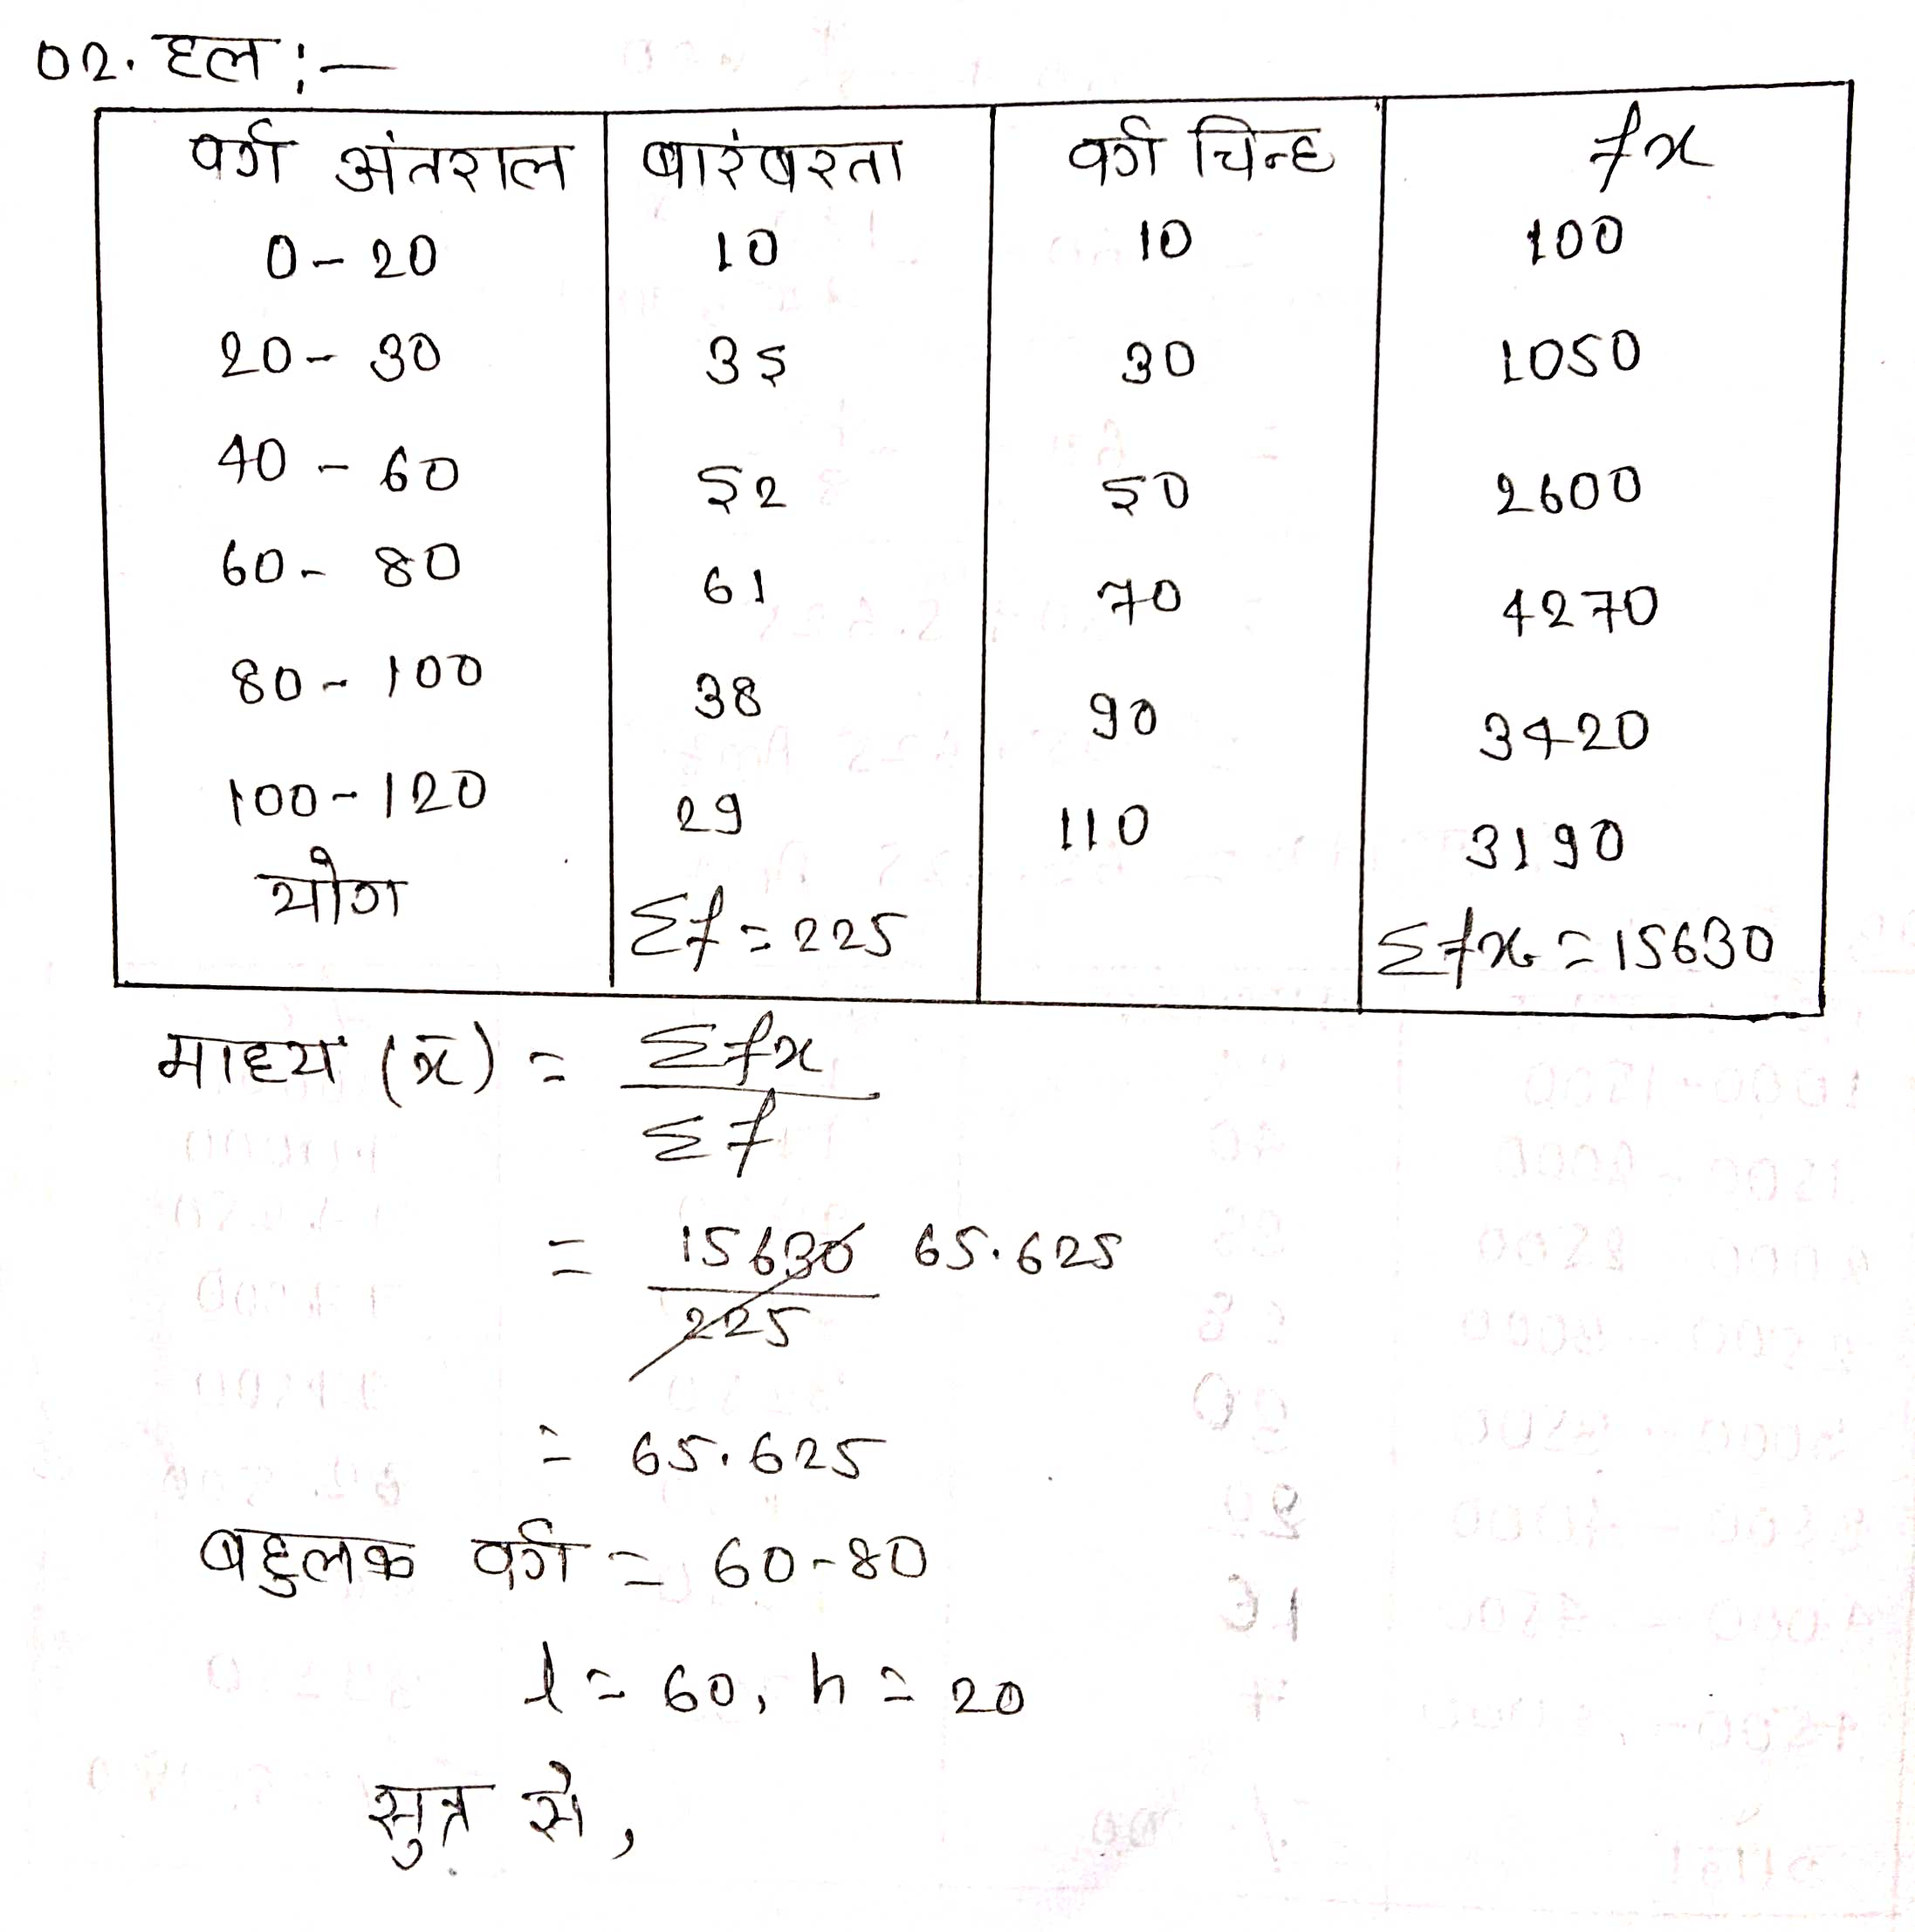 02. हल :—
वर्ग अंतराल बारंबरता वर्ग चिन्ह fx
0 - 20 10 10 100
20 - 30 35 30 1050
40 - 60 52 50 2600
60 - 80 61 70 4270
80 - 100 38 90 3420
100 - 120 29 110 3190
योग Σf = 225 Σfx = 15630
माध्य (x̄) = Σfx / Σf
= 15630 / 225 65.625
= 65.625
बहुलक वर्ग = 60 - 80
l = 60, h = 20
सुत्र से,